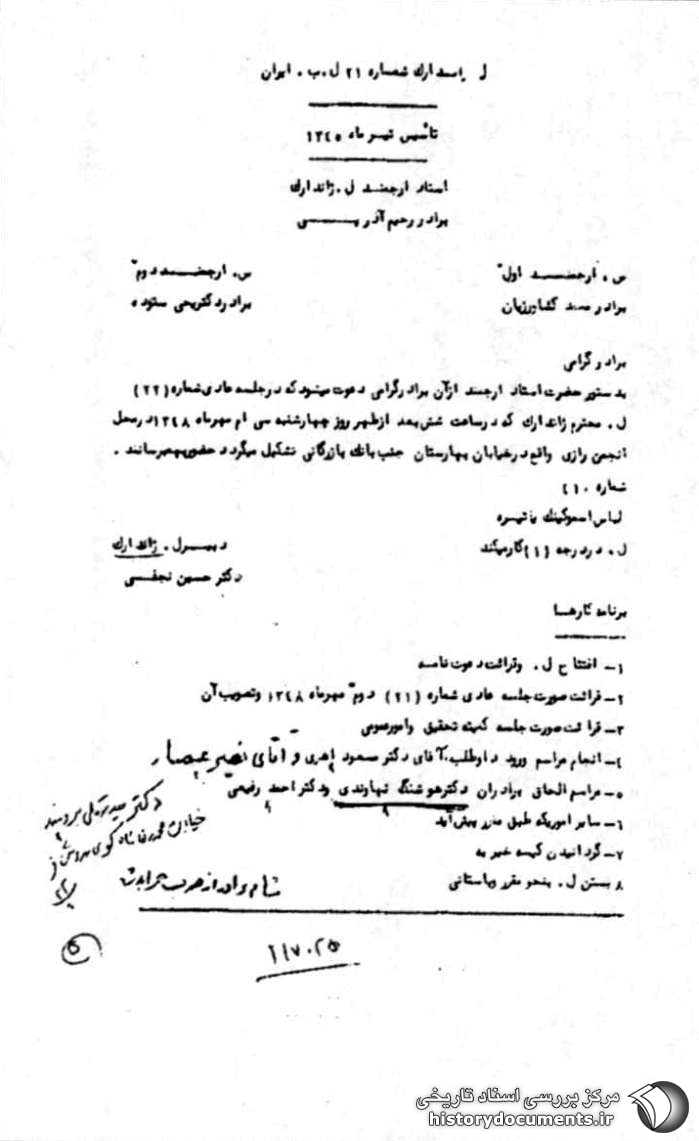 ل ژاندارك شماره ۲۱ ل.ب. ایران
تأسیس تیر ماه ۱۳٤۵
استاد ارجمند ل. ژاندارك
برادر رحیم آذر
س. ارجمند اول
س. ارجمند دوم
برادر کشاورزیان
برادر دکتر یحیی ستوده
برادر گرامی
بدستور حضرت استاد ارجمند از آن برادر گرامی دعوت میشود که در جلسه عادی شماره (۲۲)
ل. محترم ژاندارك که در ساعت شش بعد از ظهر روز چهارشنبه سی ام مهرماه ۱۳٤۸ در محل
انجمن رازی واقع در خیابان بهارستان جنب بانك بازرگانی تشکیل میگردد حضور بهمرسانند.
شماره ۱۰
لباس اسموکینك یا تیره
ل. در درجه (۱) کار میکند
دبیر ل. ژاندارك
دکتر حسین نجفی
برنامه کارها
۱- افتتاح ل. و قرائت دعوت نامه
۲- قرائت صورت جلسه عادی شماره (۲۱) دوم مهرماه ۱۳٤۸ و تصویب آن
۳- قرائت صورت جلسه کمیته تحقیق و امور عمومی
٤- انجام مراسم ورود داوطلب، آقای دکتر مسعود و آقای نصیر عصار
۵- مراسم الحاق برادران دکتر هوشنگ نهاوندی و دکتر احمد رفیعی
۶- سایر اموریکه طبق مقرر پیش آید
۷- گردانیدن کیسه خیریه
۸ بستن ل. بنحو مقرر و باستانی
دکتر
خیابان محمدرضا شاه کوی
شام
۵
۲۱۷۰۲۵
مرکز بررسی اسناد تاریخی
historydocuments.ir